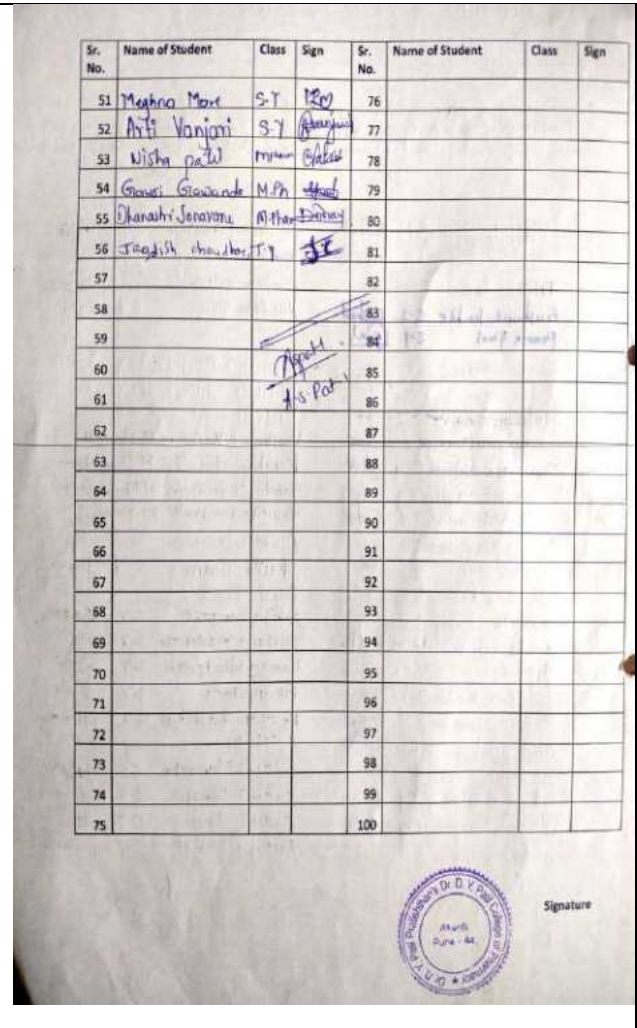 Sr. No. Name of Student Class Sign Sr. No. Name of Student Class Sign
51 Meghna More S.Y 76
52 Arti Vanjari S.Y 77
53 Nisha patil 78
54 Gouri Gowande M.Ph 79
55 Dhanashri Sonavane M.Phar 80
56 Jagdish choudhari T.Y 81
57 82
58 83
59 84
60 85
61 A.S. Patil 86
62 87
63 88
64 89
65 90
66 91
67 92
68 93
69 94
70 95
71 96
72 97
73 98
74 99
75 100
Dr. D. Y. Patil Pratishthan's Dr. D. Y. Patil College of Pharmacy
Akurdi
Pune - 44.
Signature